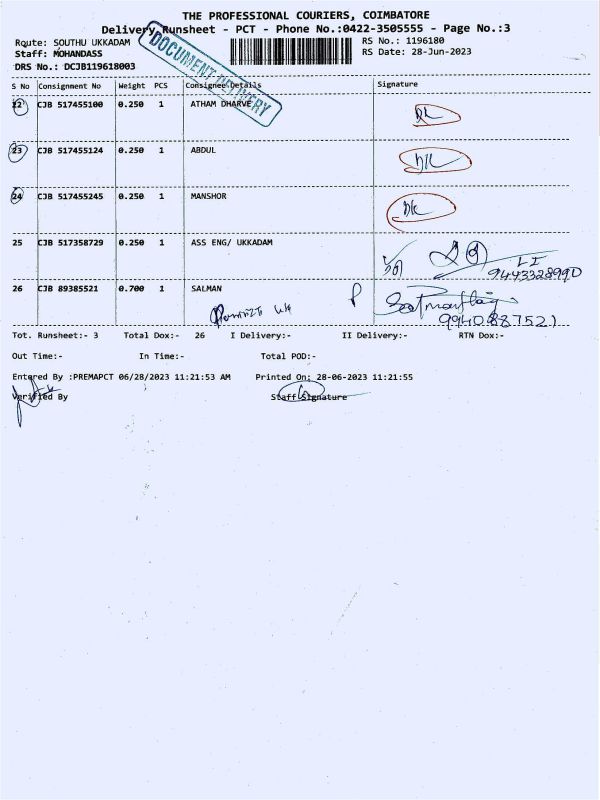 THE PROFESSIONAL COURIERS, COIMBATORE
Delivery Runsheet - PCT - Phone No.:0422-3505555 - Page No.:3
Route: SOUTHU UKKADAM RS No.: 1196180
Staff: MOHANDASS RS Date: 28-Jun-2023
DRS No.: DCJB119618003
DOCUMENT DELIVERY
S No Consignment No Weight PCS Consignee Details Signature
22 CJB 517455100 0.250 1 ATHAM DHARVE
23 CJB 517455124 0.250 1 ABDUL
24 CJB 517455245 0.250 1 MANSHOR
25 CJB 517358729 0.250 1 ASS ENG/ UKKADAM
9443328990
26 CJB 89385521 0.700 1 SALMAN
P
9940887521
Tot. Runsheet:- 3 Total Dox:- 26 I Delivery:- II Delivery:- RTN Dox:-
Out Time:- In Time:- Total POD:-
Entered By :PREMAPCT 06/28/2023 11:21:53 AM Printed On: 28-06-2023 11:21:55
Verified By Staff Signature